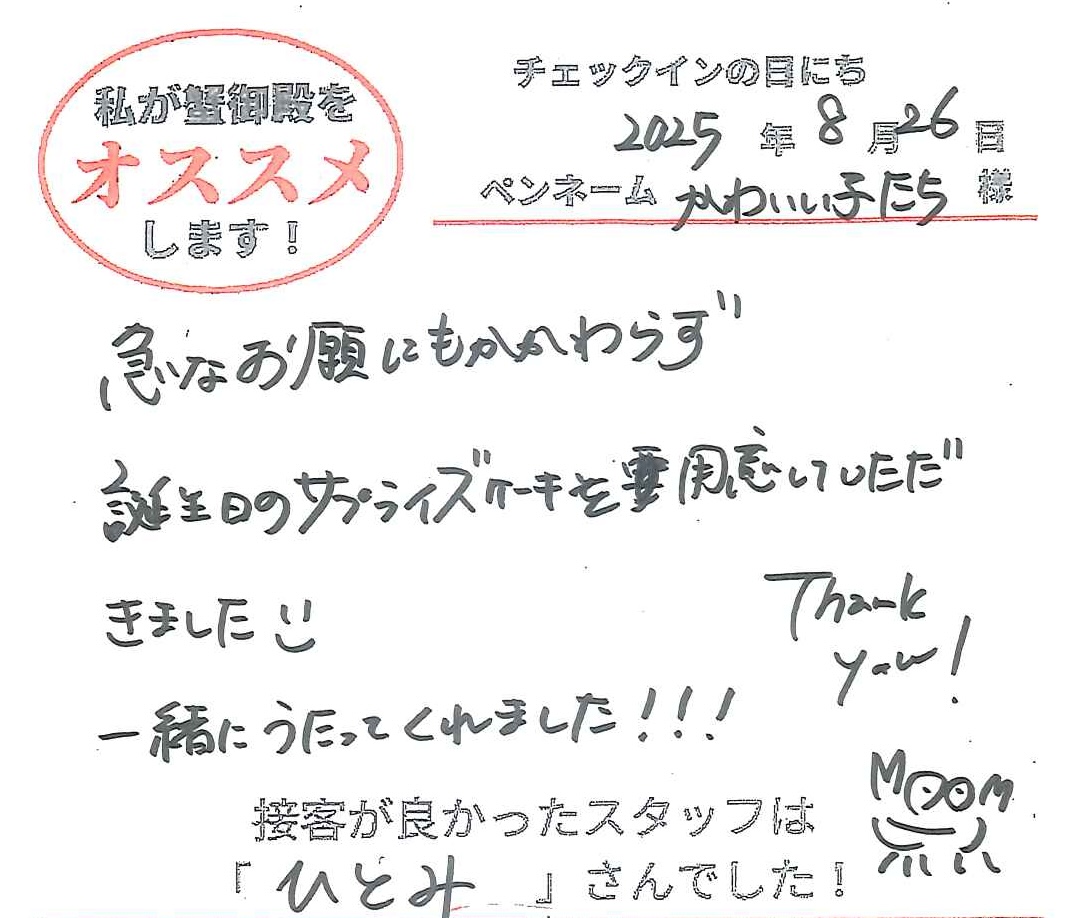 私が蟹御殿を
オススメ
します！
チェックインの日にち
2025年8月26日
ペンネーム かわいい子たち 様
急なお願いにもかかわらず
誕生日のサプライズケーキを用意していただ
きました
一緒にうたってくれました!!!
Thank
you!
接客が良かったスタッフは
「ひとみ」さんでした！